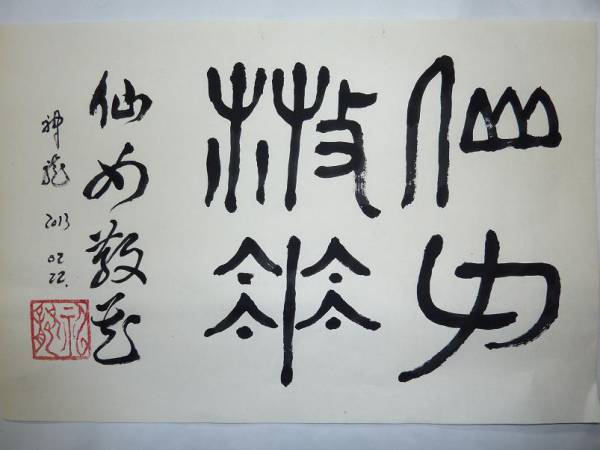 仙女
散花
仙女散花
神龍 2013 02.22.